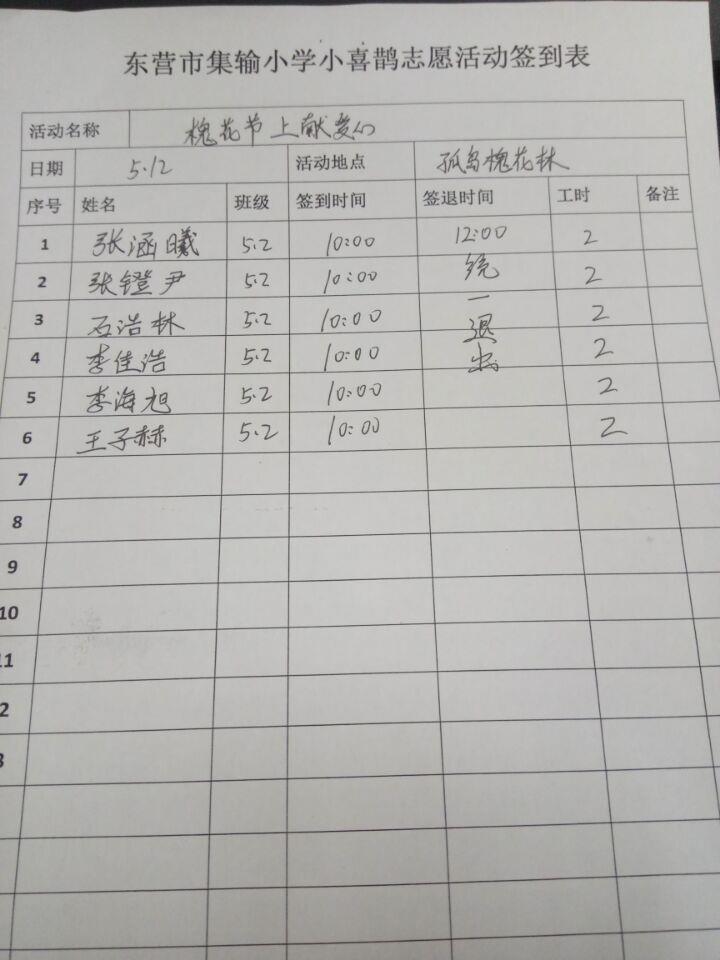 东营市集输小学小喜鹊志愿活动签到表
活动名称 槐花节上献爱心
日期 5.12 活动地点 孤岛槐花林
序号 姓名 班级 签到时间 签退时间 工时 备注
1 张涵曦 5.2 10:00 12:00 2
2 张镫尹 5.2 10:00 统 2
3 石浩林 5.2 10:00 一 2
4 李佳浩 5.2 10:00 退出 2
5 李海旭 5.2 10:00 2
6 王子赫 5.2 10:00 2
7
8
9
10
11
2
3